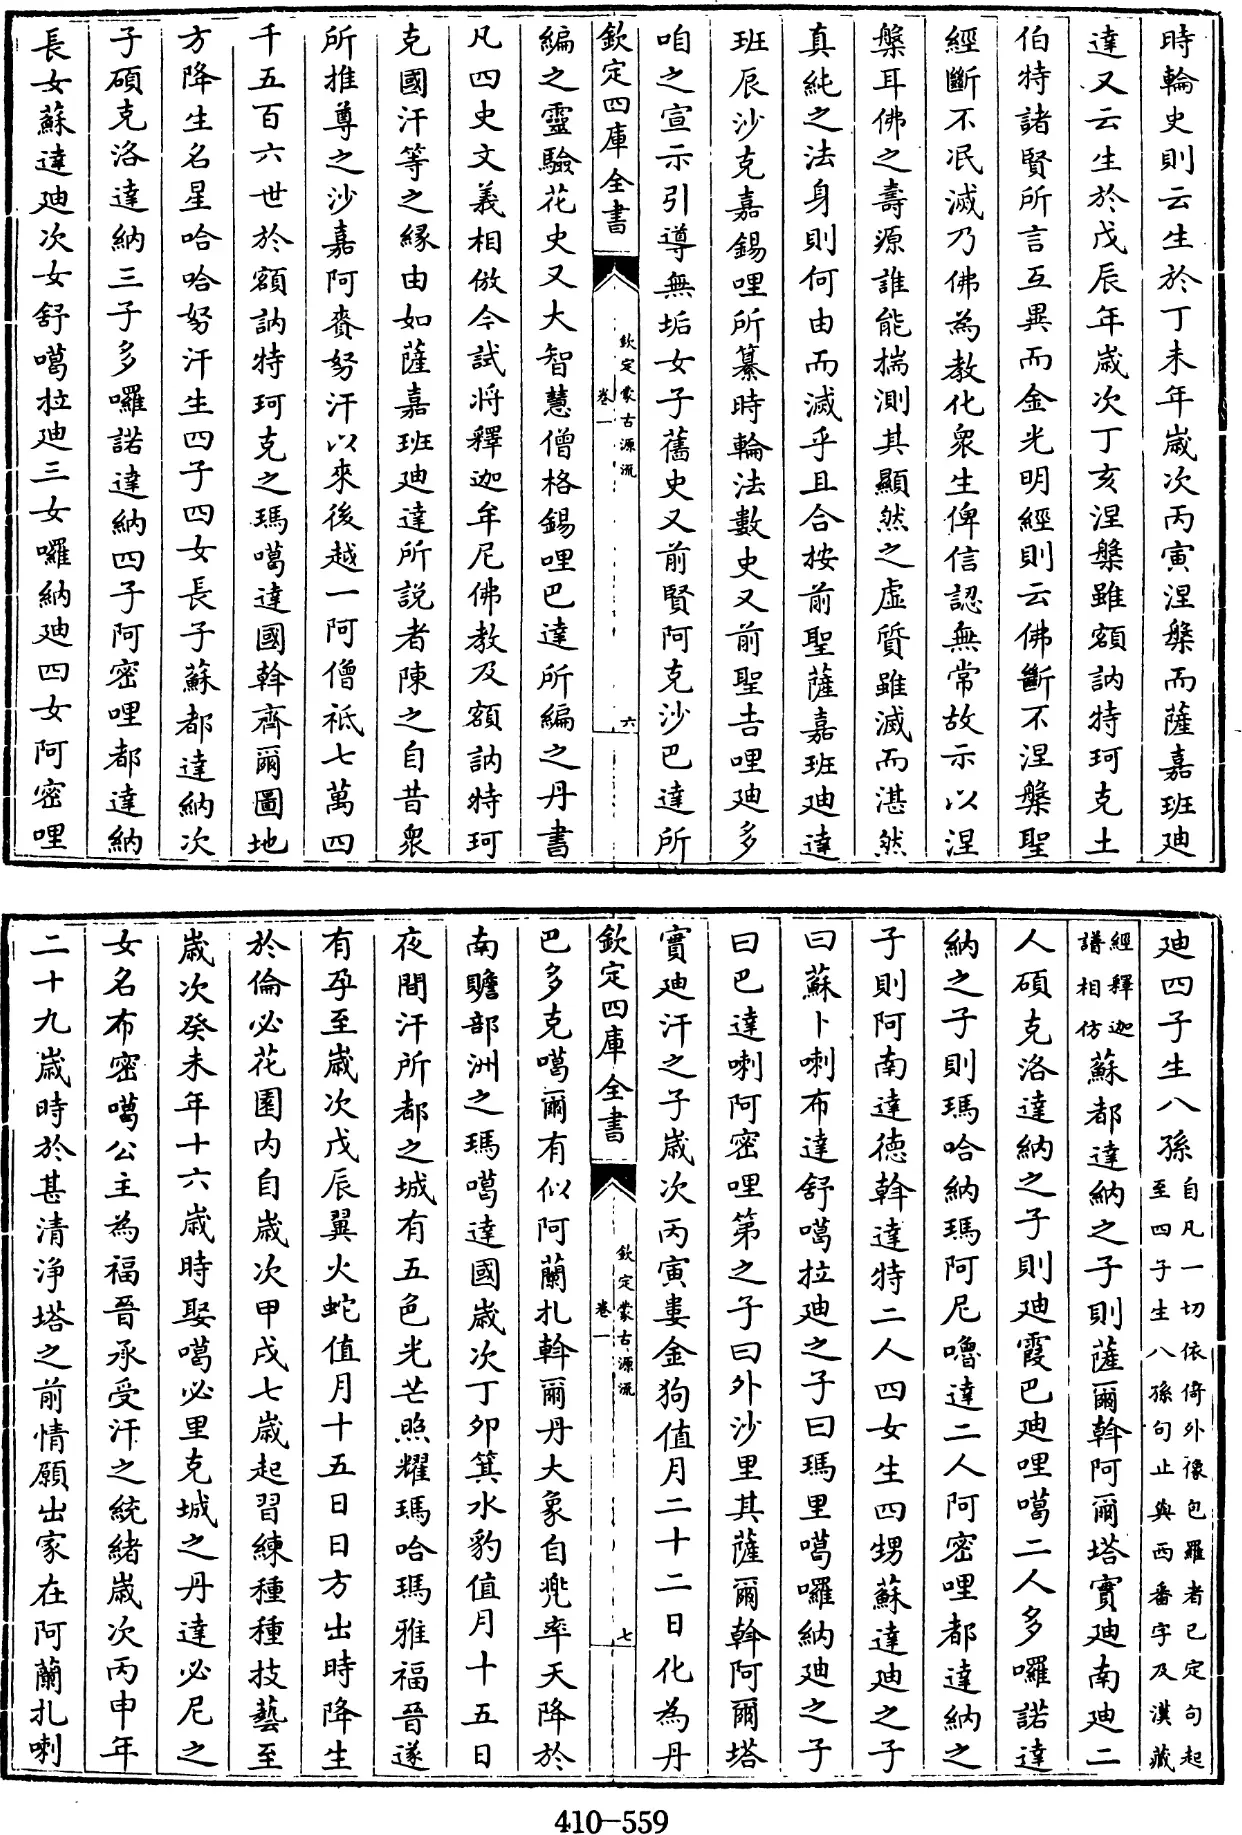 時輪史則云生於丁未年歲次丙寅涅槃而薩嘉班廸
達又云生於戊辰年歲次丁亥涅槃雖額訥特珂克土
伯特諸賢所言互異而金光明經則云佛斷不涅槃聖
經斷不泯滅乃佛為教化衆生俾信認無常故示以涅
槃耳佛之壽源誰能揣測其顯然之虛質雖滅而湛然
真純之法身則何由而滅乎且合按前聖薩嘉班廸達
班辰沙克嘉錫哩所纂時輪法數史又前聖吉哩廸多
咱之宣示引導無垢女子舊史又前賢阿克沙巴達所
欽定四庫全書
欽定蒙古源流
卷一
六
編之靈驗花史又大智慧僧格錫哩巴達所編之丹書
凡四史文義相倣今試將釋迦牟尼佛教及額訥特珂
克國汗等之緣由如薩嘉班廸達所說者陳之自昔衆
所推尊之沙嘉阿賚努汗以來後越一阿僧祇七萬四
千五百六世於額訥特珂克之瑪噶達國斡齊爾圖地
方降生名星哈哈努汗生四子四女長子蘇都達納次
子碩克洛達納三子多囉諾達納四子阿密哩都達納
長女蘇達廸次女舒噶拉廸三女囉納廸四女阿密哩
廸四子生八孫自凡一切依倚外像包羅者已定句起
至四子生八孫句止與西番字及漢藏
經釋迦
譜相仿蘇都達納之子則薩爾斡阿爾塔實廸南廸二
人碩克洛達納之子則廸霞巴廸哩噶二人多囉諾達
納之子則瑪哈納瑪阿尼嚕達二人阿密哩都達納之
子則阿南達德斡達特二人四女生四甥蘇達廸之子
曰蘇卜喇布達舒噶拉廸之子曰瑪里噶囉納廸之子
曰巴達喇阿密哩第之子曰外沙里其薩爾斡阿爾塔
實廸汗之子歲次丙寅婁金狗值月二十二日化為丹
欽定四庫全書
欽定蒙古源流
卷一
七
巴多克噶爾有似阿蘭扎斡爾丹大象自兜率天降於
南贍部洲之瑪噶達國歲次丁卯箕水豹值月十五日
夜間汗所都之城有五色光芒照耀瑪哈瑪雅福晉遂
有孕至歲次戊辰翼火蛇值月十五日日方出時降生
於倫必花園內自歲次甲戌七歲起習練種種技藝至
歲次癸未年十六歲時娶噶必里克城之丹達必尼之
女名布密噶公主為福晉承受汗之統緒歲次丙申年
二十九歲時於甚清淨塔之前情願出家在阿蘭扎喇
410-559